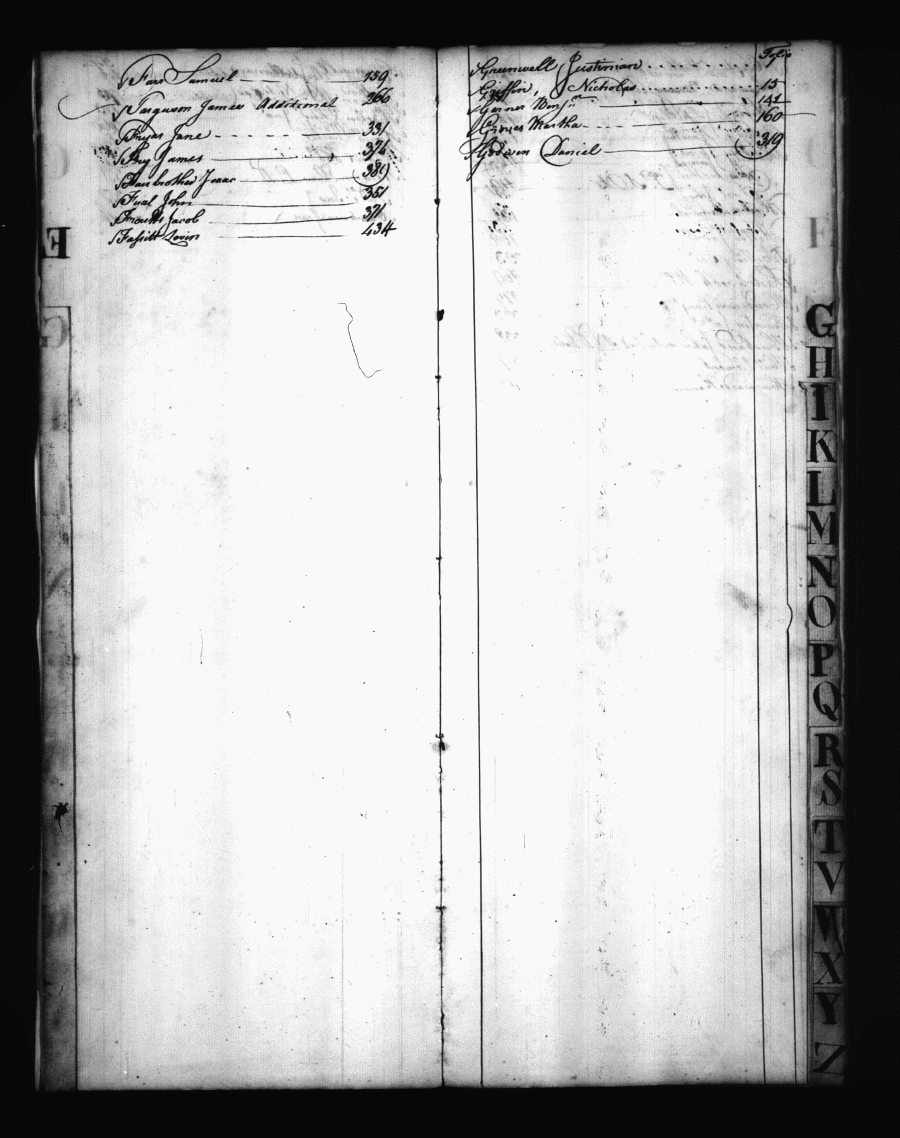 Farr Samuel 159
Ferguson James Additional 366
Fryar Jane 331
Fry James 374
Fairbrother Isaac 389
Fual John 351
Jacob 371
Fassitt Levin 434
Folio
Greenwell Justinian 1
Griffin, Nicholas 15
Garner Benjn 141
Groves Martha 160
Godwin Daniel 319
E
G
G
H
I
K
L
M
N
O
P
Q
R
S
T
V
W
X
Y
Z